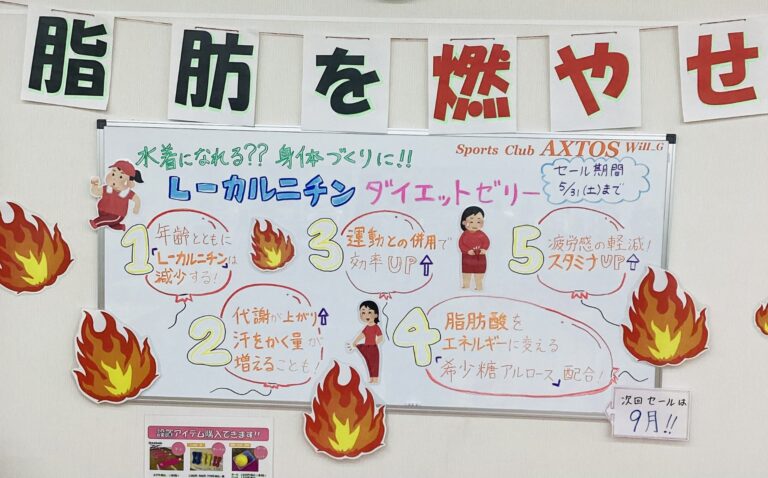 脂肪を燃やせ
水着になれる?? 身体づくりに!!
Sports Club AXTOS Will_G
L-カルニチン ダイエットゼリー
セール期間
5/31(土)まで
1 年齢とともに
「L-カルニチン」は
減少する!
2 代謝が上がり↑
汗をかく量が
増えることも!
3 運動との併用で
効率UP↑
4 脂肪酸を
エネルギーに変える
「希少糖アルロース」配合!
5 疲労感の軽減!
スタミナUP↑
次回セールは
9月!!
設置アイテム購入できます!!